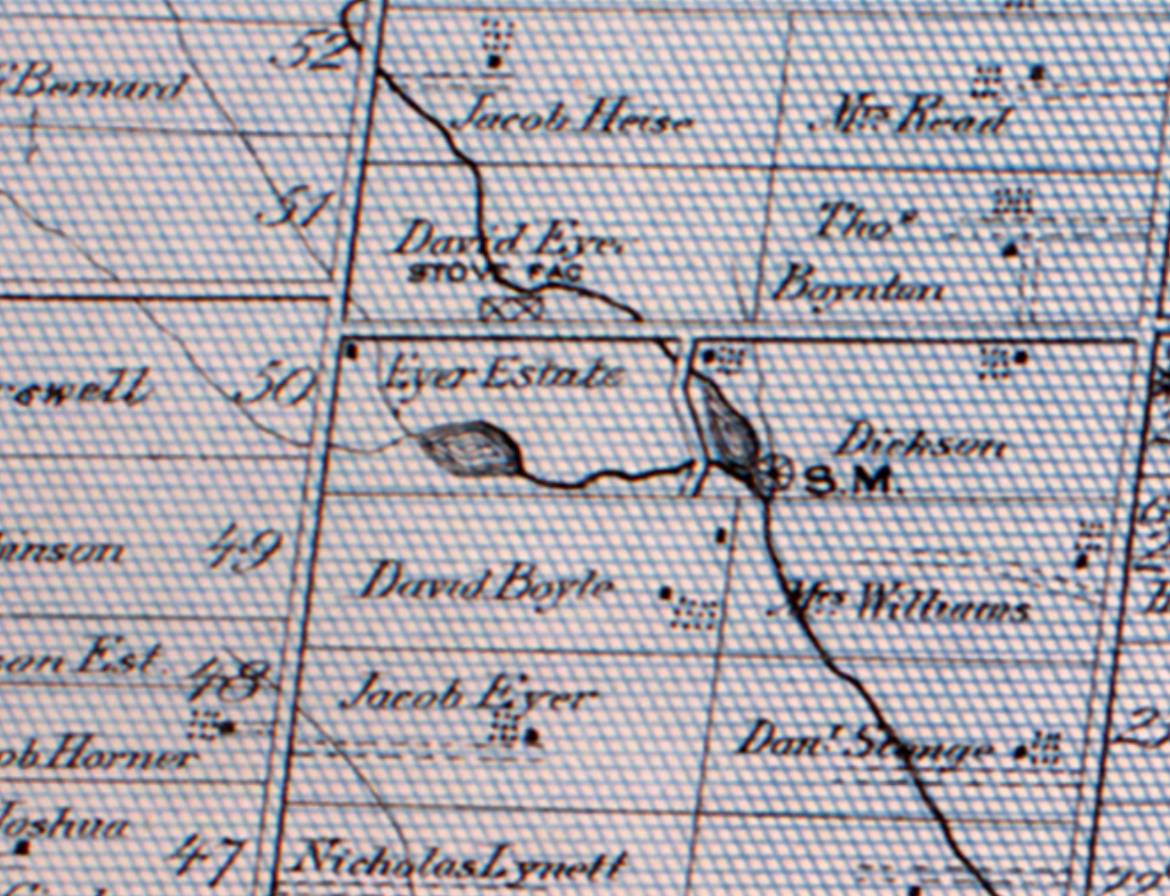 52
Bernard
Jacob Heise
Mrs Read
51
David Eyer
STOVE FAC
Thos
Boynton
50
Eyer Estate
Dickson
S.M.
49
David Boyle
Mrs Williams
Est.
48
Jacob Eyer
Horner
Danl. Stonge
Joshua
47
Nicholas Lynett